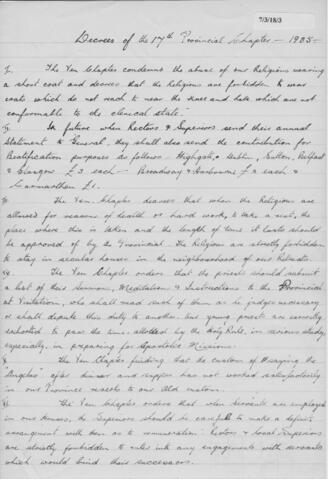 7/3/18/3
Decrees of the 17th Provincial Chapter - 1905-
The Ven Chapter condemns the abuse of our Religious wearing
a short coat and decrees that the Religious are forbidden to wear
coats which do not reach to near the knees and hats which are not
conformable to the clerical state.
In future when Rectors & Superiors send their annual
Statement to General, they shall also send the contribution for
Beatification purposes as follows - Highgate, Dublin, Sutton, Belfast
& Glasgow £3 each - Broadway & Harborne £2 each &
Carmarthen £1.
The Ven. Chapter decrees that when the Religious are
allowed for reasons of health or hard work, to take a rest, the
place where this is taken and the length of time it lasts should
be approved of by the Provincial. The Religious are strictly forbidden
to stay in secular houses in the neighbourhood of our Retreats.
The Ven Chapter orders that the priests should submit
a list of their Sermons, Meditations & Instructions to the Provincial
at Visitation, who shall read such of them as he judges necessary
or shall depute this duty to another. Our young priests are earnestly
exhorted to pass the time allotted by the Holy Rule, in serious study,
especially, in preparing for Apostolic Missions.
The Ven Chapter finding that the custom of saying the
"Angelus" after dinner and supper has not worked satisfactorily
in our Province reverts to our old custom.
The Ven Chapter orders that when servants are employed
in our Houses, the Superiors should be careful to make a definite
arrangement with them as to remuneration. Rectors & Local Superiors
are strictly forbidden to enter into any engagements with servants
which would bind their successors.